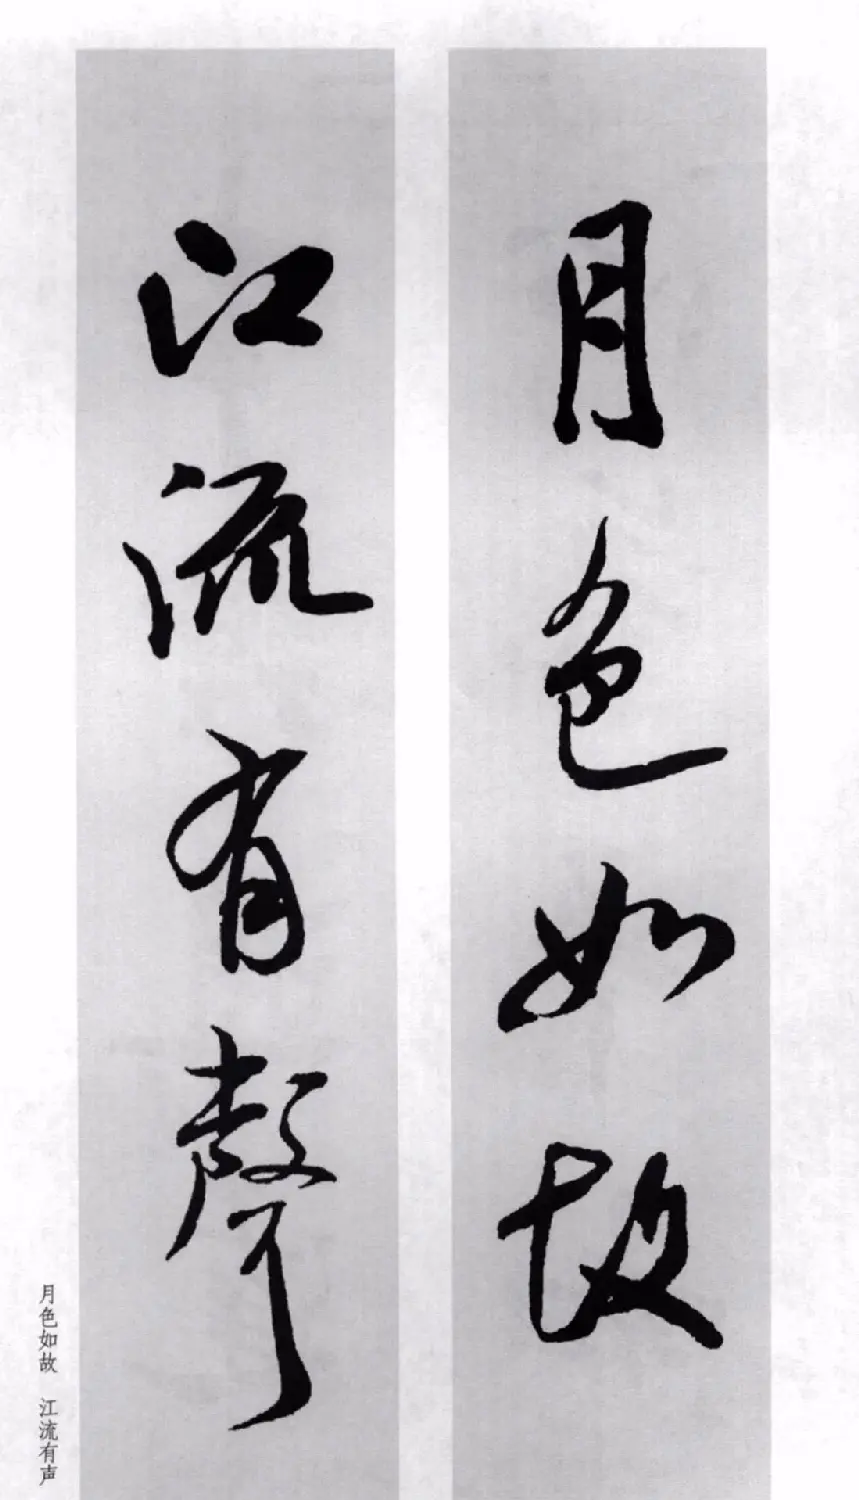 月色如故
江流有聲
月色如故 江流有声